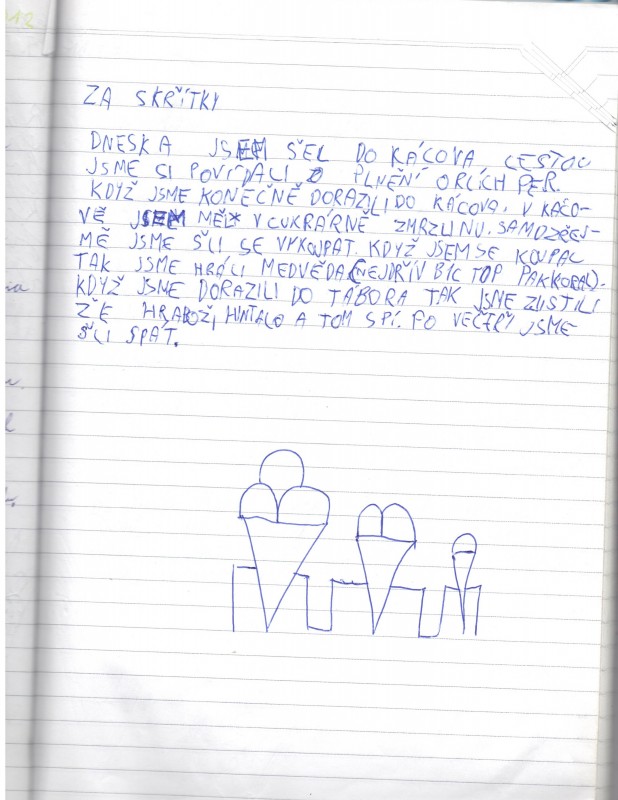 12
ZA SKŘÍTKY
DNESKA JSEM ŠEL DO KÁCOVA. CESTOU
JSME SI POVÍDALI O PLNĚNÍ ORLÍCH PER.
KDYŽ JSME KONEČNĚ DORAZILI DO KÁCOVA. V KÁCO-
VĚ JSEM MĚL V CUKRÁRNĚ ZMRZLINU. SAMOZŘEJ-
MĚ JSME ŠLI SE VYKOUPAT. KDYŽ JSEM SE KOUPAL
TAK JSME HRÁLI MEDVĚDA (NEJDŘÍV BIC TOP PAK KORAL).
KDYŽ JSME DORAZILI DO TÁBORA TAK JSME ZJISTILI
ŽE HRABOŽI, A TOM SPÍ. PO VEČEŘI JSME
ŠLI SPÁT.